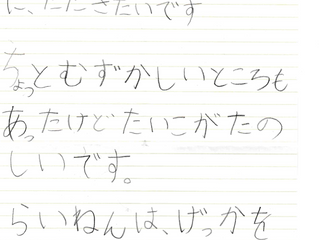 に、たたきたいです
ちょっとむずかしいところも
あったけどたいこがたの
しいです。
らいねんは、げっかを